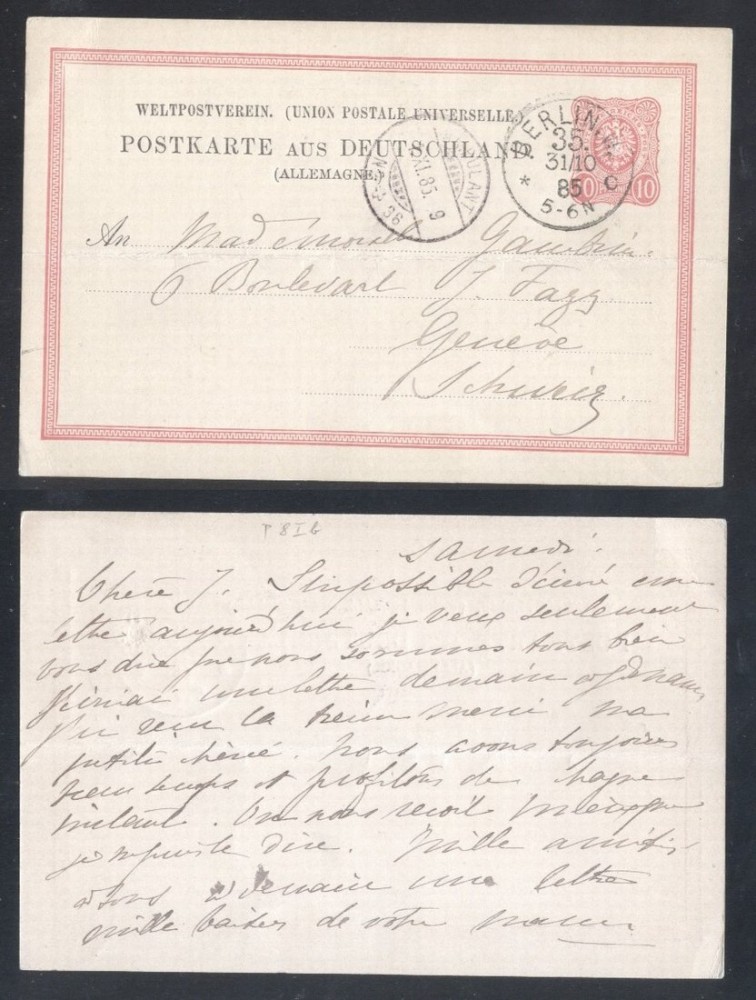 WELTPOSTVEREIN. (UNION POSTALE UNIVERSELLE.)
POSTKARTE AUS DEUTSCHLAND.
(ALLEMAGNE.)
BERLIN, W.
35.
31/10
85
5-6N
* C
10 10
AMBULANT
XI.85. 9
An Mademoiselle
6 Boulevart J. Fazy
Genève
Schweiz.
Samedi.
Chère J. Impossible d'écrire une
lettre aujourd'hui je veux seulement
vous dire que nous sommes tous bien
J'écrirai une lettre demain
J'ai reçu la tienne merci ma
petite chérie. Nous avons toujours
beau temps et profitons de chaque
instant. On nous reçoit mieux que
je ne puis le dire. Mille amitiés
à tous à demain une lettre
mille baisers de votre maman